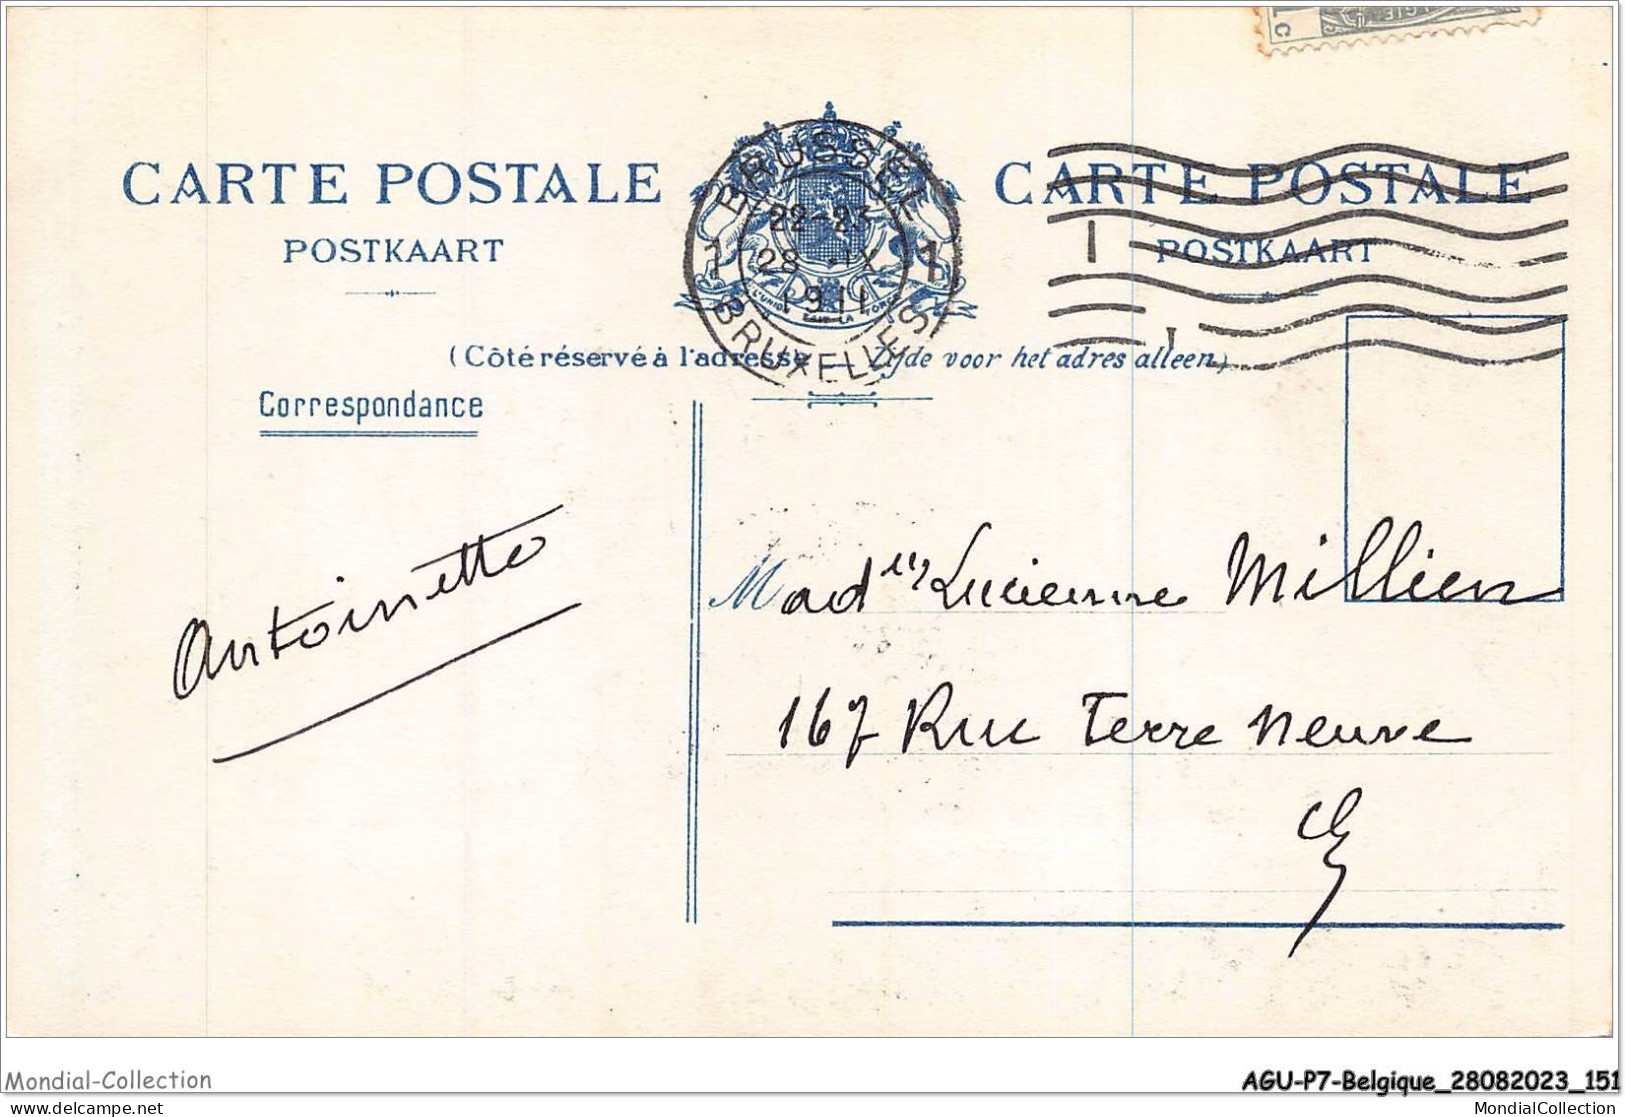 CARTE POSTALE
POSTKAART
CARTE POSTALE
POSTKAART
BRUSSEL
22-23
1 28 IX 1
1911
BRUXELLES
L'UNION FAIT LA FORCE
(Côté réservé à l'adresse — Zijde voor het adres alleen)
Correspondance
Antoinette
Madelle Lucienne Millien
167 Rue Terre Neuve
Mondial-Collection
AGU-P7-Belgique_28082023_151
www.delcampe.net
MondialCollection